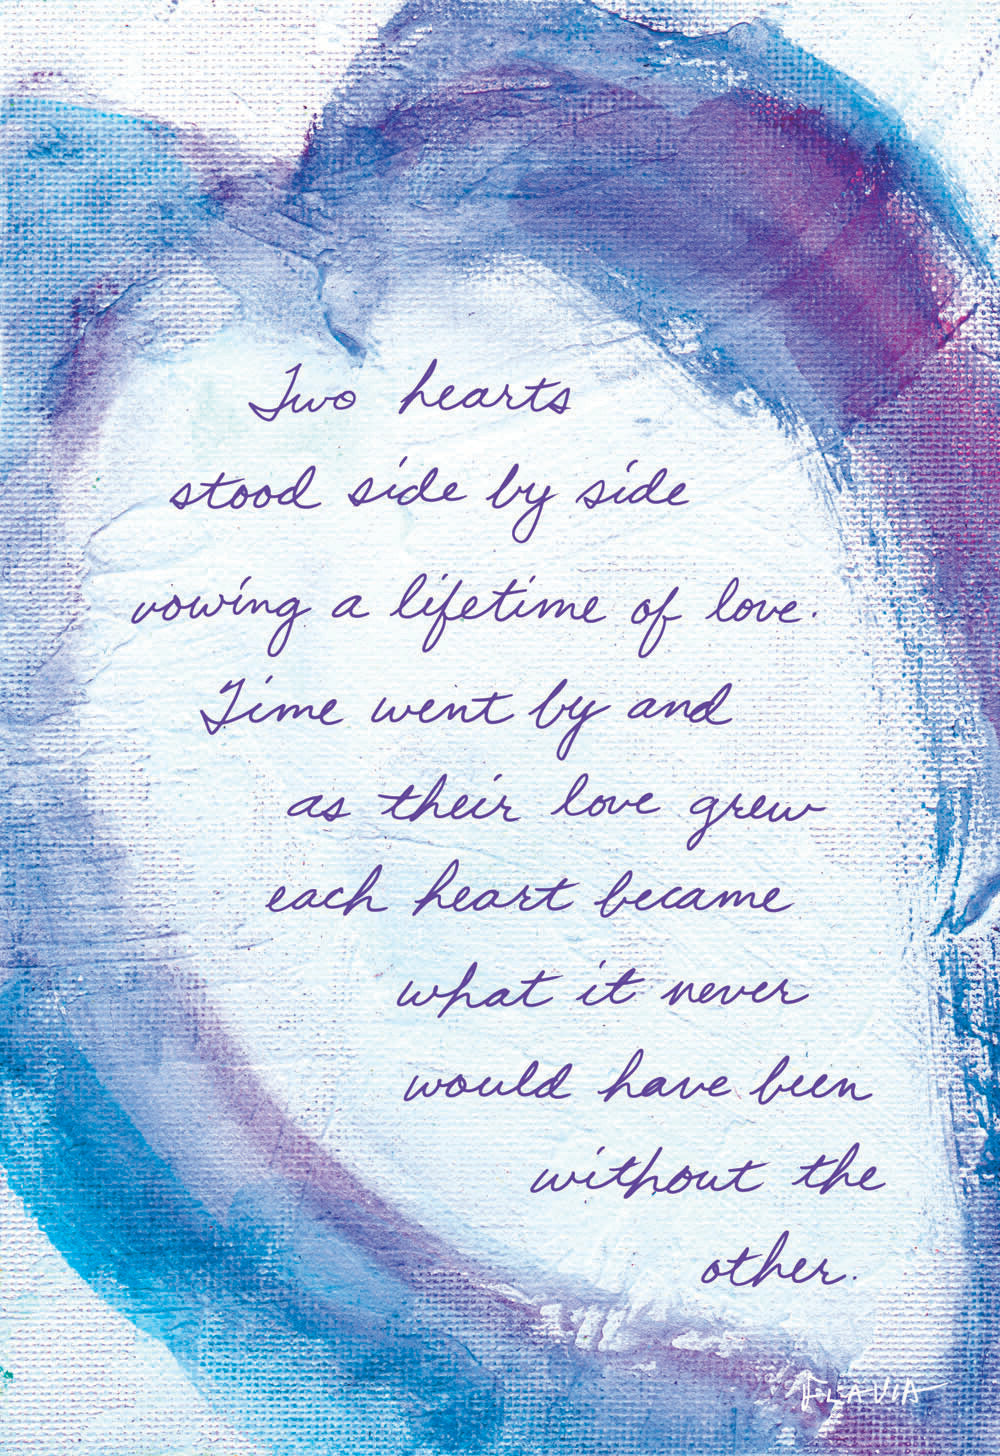 Two hearts
stood side by side
vowing a lifetime of love.
Time went by and
as their love grew
each heart became
what it never
would have been
without the
other.
FLAVIA